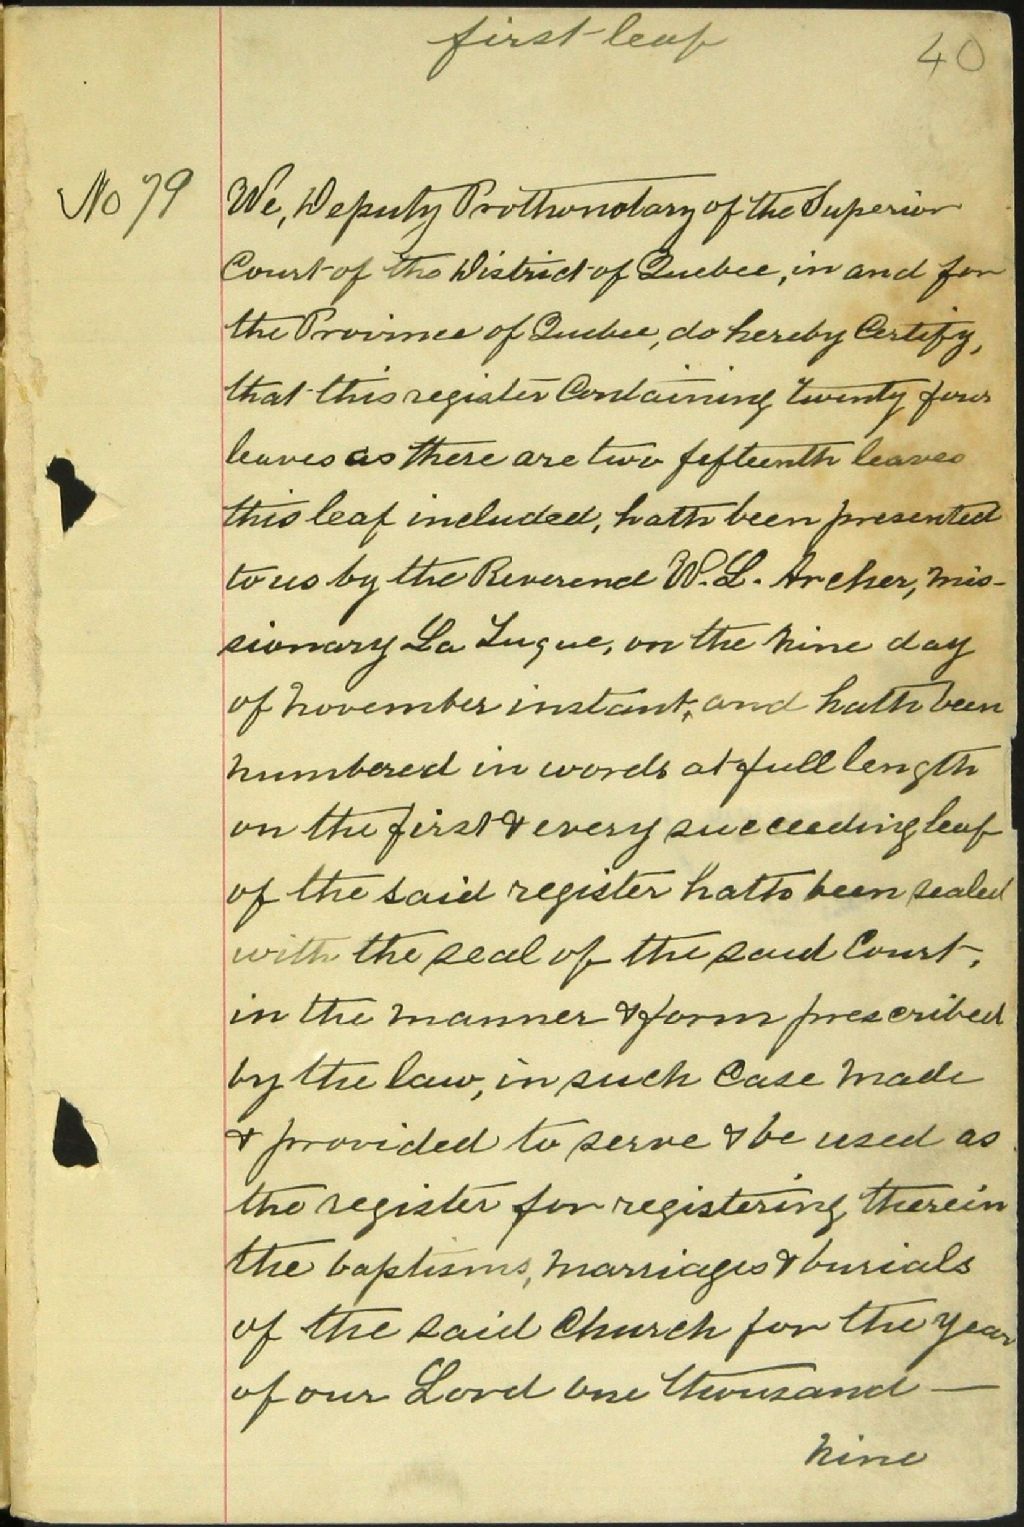 first leaf
40
No 79
We, Deputy Prothonotary of the Superior
Court of the District of Quebec, in and for
the Province of Quebec, do hereby Certify,
that this register Containing twenty four
leaves as there are two fifteenth leaves
this leaf included, hath been presented
to us by the Reverend W. L. Archer, Mis-
sionary La Tuque, on the Nine day
of November instant, and hath been
numbered in words at full length
on the first & every succeeding leaf
of the said register hath been sealed
with the seal of the said Court,
in the manner & form prescribed
by the law, in such Case Made
& provided to serve & be used as
the register for registering therein
the baptisms, Marriages & burials
of the said Church for the Year
of our Lord one thousand —
Nine